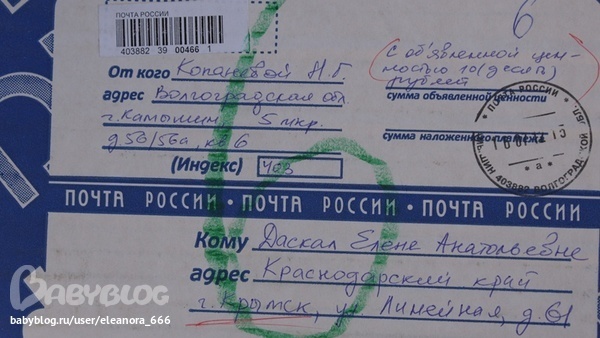 ПОЧТА РОССИИ
403882 39 00466 1
6
С объявленной цен-
ностью 10 (десять)
рублей
От кого Копаневой Н.Г.
адрес Волгоградская обл.
г. Камышин 5 мкр.
д 56/56а, кв 6
сумма объявленной ценности
сумма наложенного платежа
(Индекс) 403
ПОЧТА РОССИИ
КАМЫШИН 403882 ВОЛГОГРАДСКОЙ ОБЛ.
* а *
ПОЧТА РОССИИ • ПОЧТА РОССИИ • ПОЧТА РОССИИ
Кому Даскал Елене Анатольевне
адрес Краснодарский край
г. Крымск, ул Линейная, д. 61
BABYBLOG
babyblog.ru/user/eleanora_666